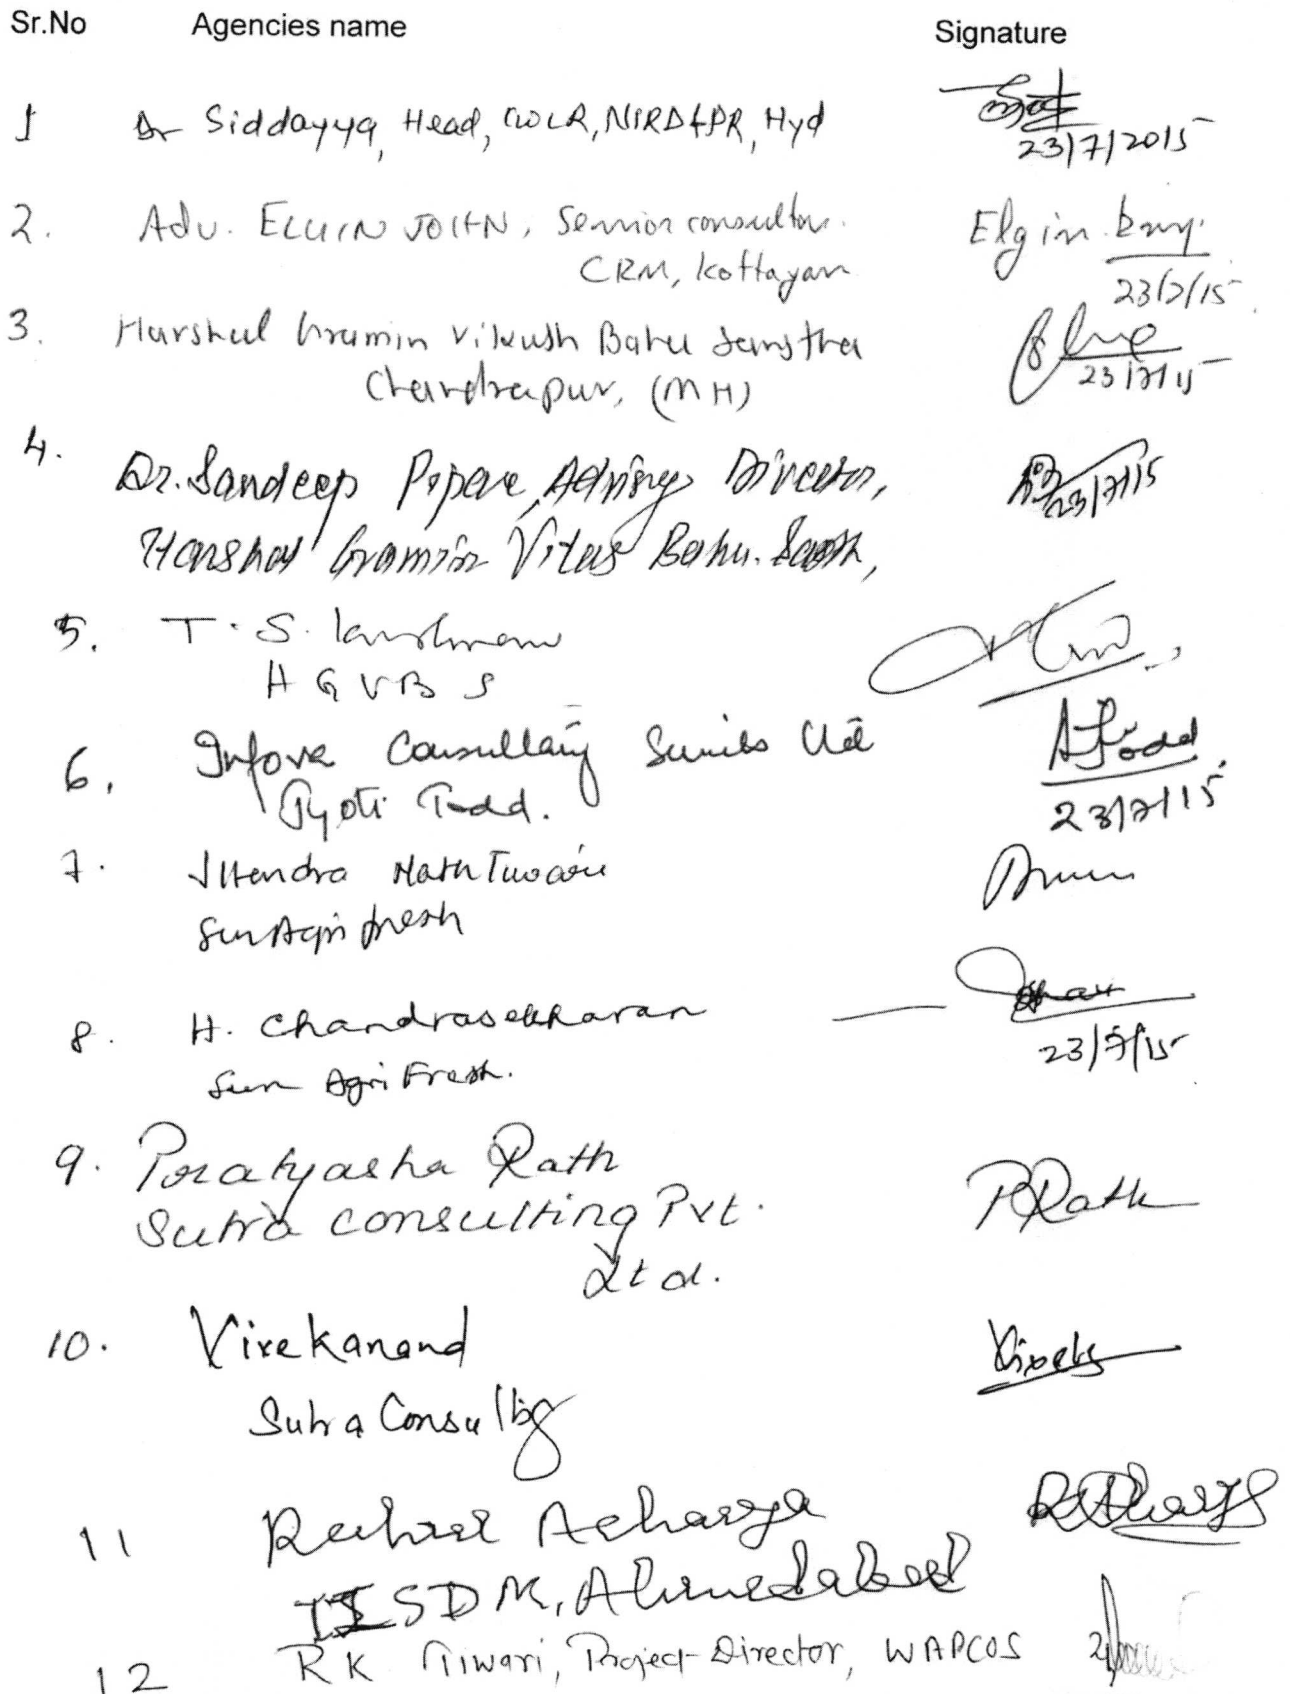 Sr.No Agencies name Signature
1 Dr Siddayya, Head, CWLR, NIRD&PR, Hyd
23/7/2015
2. Adv. ELGIN JOHN, Senior consultan. Elgin
CRM, Kottayam 23/7/15
3. Harshal Gramin Vikash Bahu Sanstha
Chandrapur, (MH) 23/7/15
4. Dr. Sandeep Popere, Director, 23/7/15
Harshal Gramin Vikas Bahu. Sansth,
5. T. S. Krishnan
H G V B S
6. Consulting Services Ltd ATodd
Jyoti Todd. 23/7/15
7. Jitendra Nath Tiwari
Sun Agri fresh
8. H. Chandrasekharan
Sun Agri Fresh. 23/7/15
9. Pratyasha Rath PRath
Sutra consulting Pvt.
Ltd.
10. Vivekanand Vivek
Sutra Consulting
11 Acharya
ISDM, Ahmedabad
12 RK Tiwari, Project Director, WAPCOS